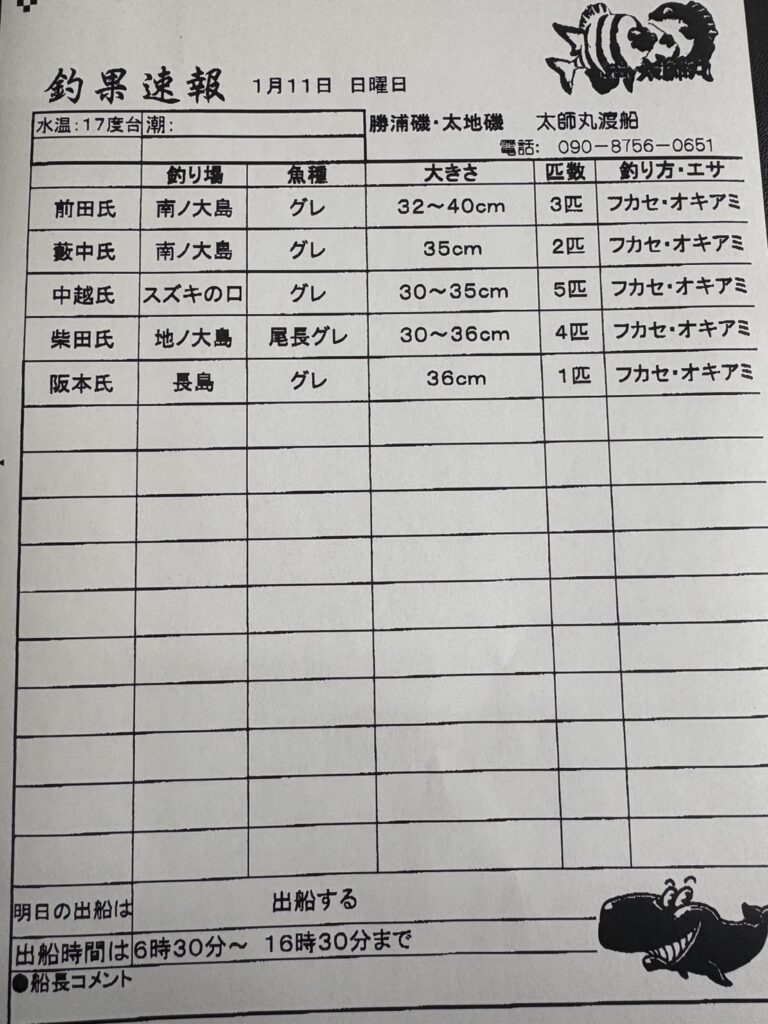 釣果速報 1月11日 日曜日
太師丸
水温:17度台 潮:
勝浦磯・太地磯 太師丸渡船
電話: 090-8756-0651
釣り場 魚種 大きさ 匹数 釣り方・エサ
前田氏 南ノ大島 グレ 32~40cm 3匹 フカセ・オキアミ
藪中氏 南ノ大島 グレ 35cm 2匹 フカセ・オキアミ
中越氏 スズキの口 グレ 30~35cm 5匹 フカセ・オキアミ
柴田氏 地ノ大島 尾長グレ 30~36cm 4匹 フカセ・オキアミ
阪本氏 長島 グレ 36cm 1匹 フカセ・オキアミ
明日の出船は 出船する
出船時間は 6時30分~ 16時30分まで
●船長コメント